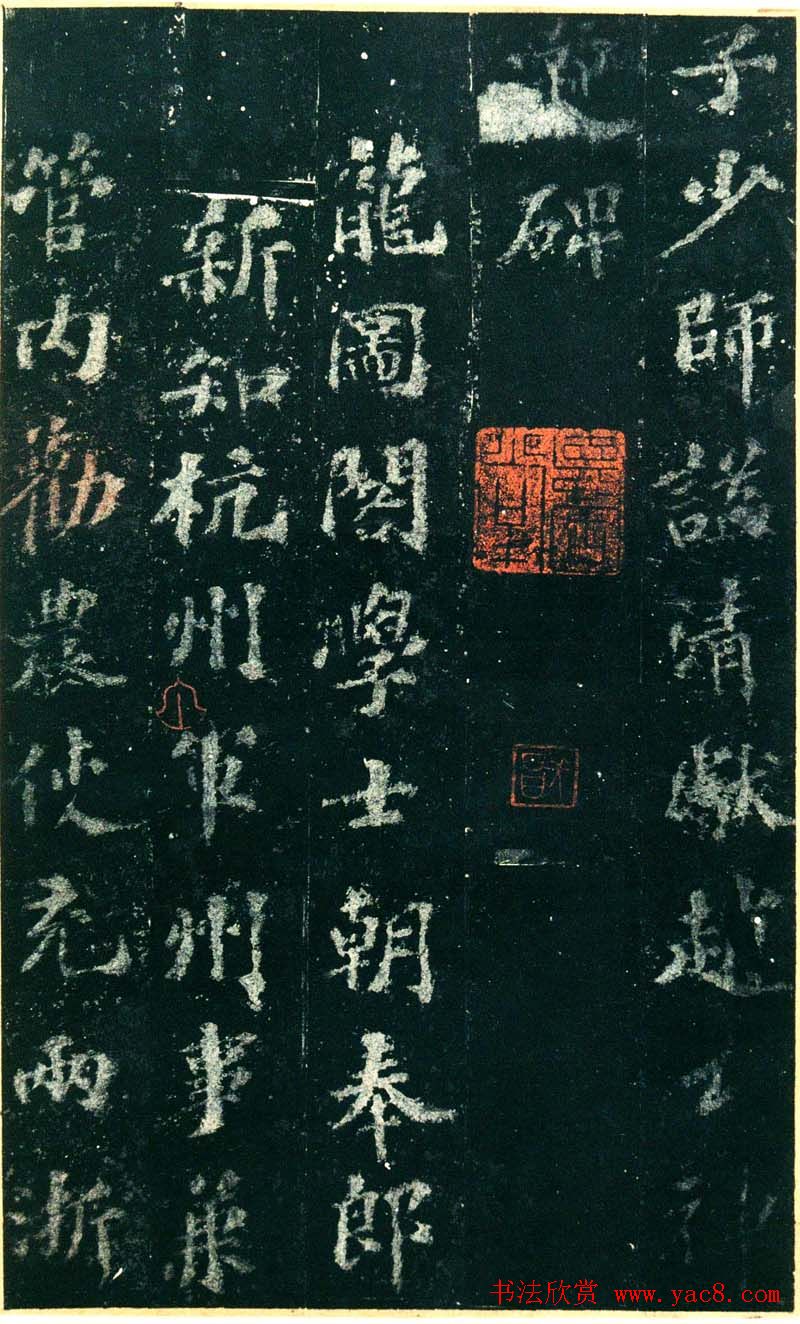 子少師諡清獻趙公神
道碑
龍圖閣學士朝奉郎
新知杭州軍州事兼
管內勸農使充兩浙
书法欣赏 www.yac8.com